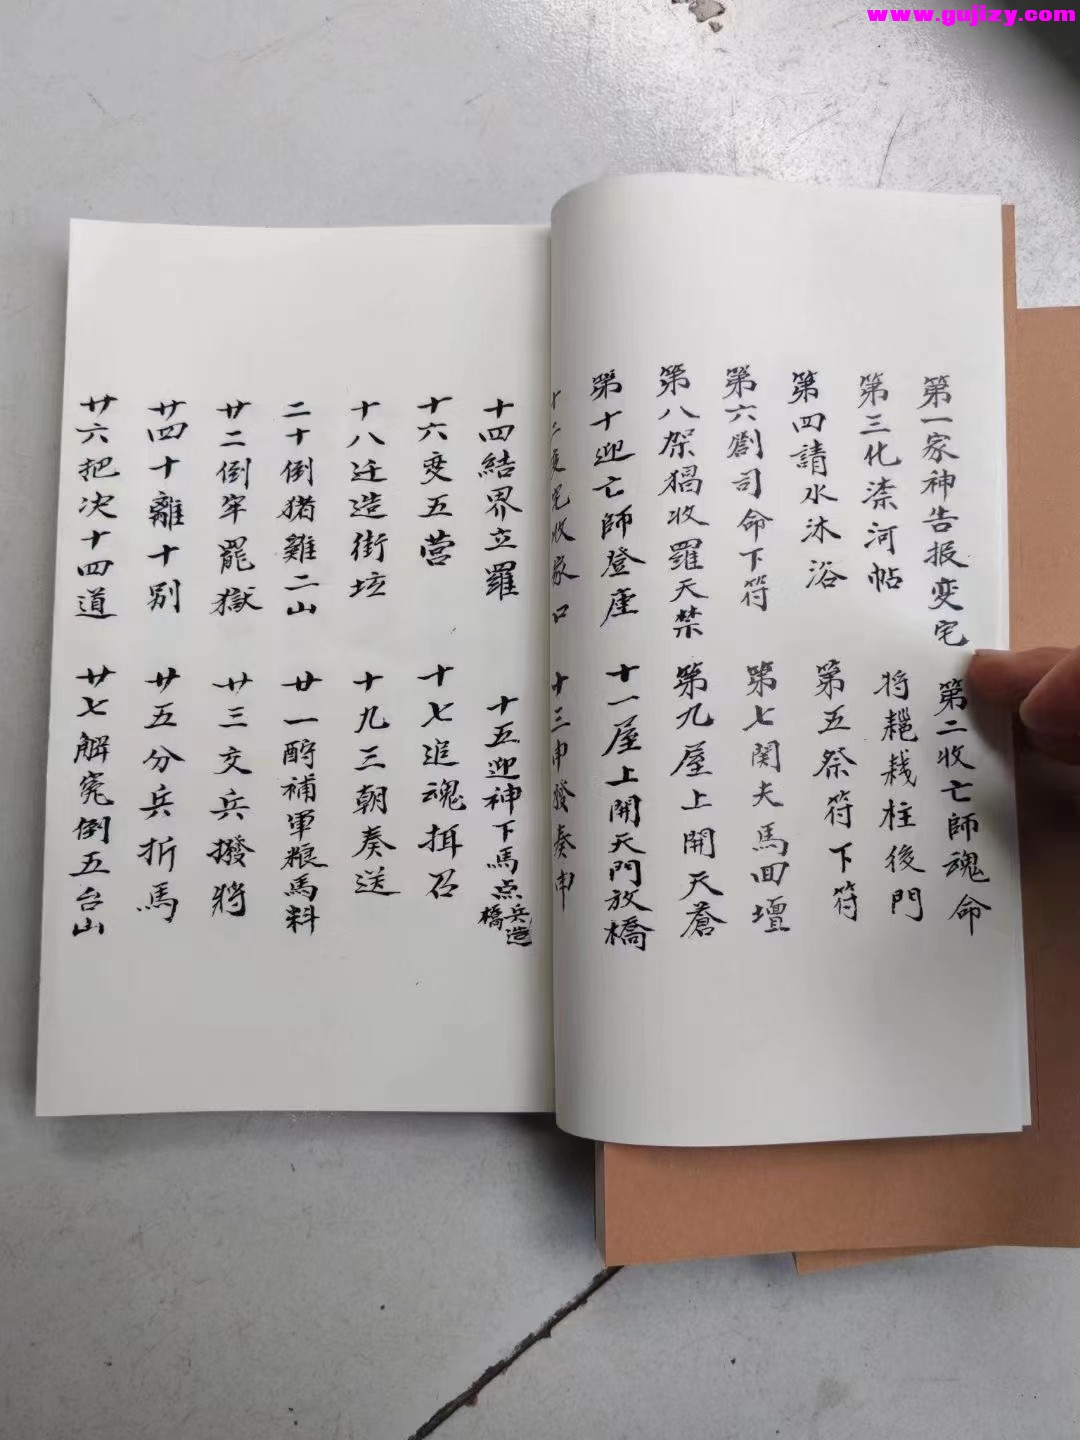 www.gujizy.com
第一家神告报变宅 第二收亡師魂命
第三化㴃河帖 将繩栽柱後門
第四請水沐浴 第五祭符下符
第六劄司命下符 第七関夫馬回壇
第八架猖收羅天禁 第九屋上開天蒼
第十迎亡師登座 十一屋上開天門放橋
十二變兄收家口 十三申發奏申
十四結界立羅 十五迎神下馬点兵造橋
十六变五营 十七進魂招召
十八迁造街坊 十九三朝奏送
二十倒猪雞二山 廿一酹補軍粮馬料
廿二倒牢罷獄 廿三交兵撥將
廿四十離十别 廿五分兵折馬
廿六把决十四道 廿七解冤倒五台山